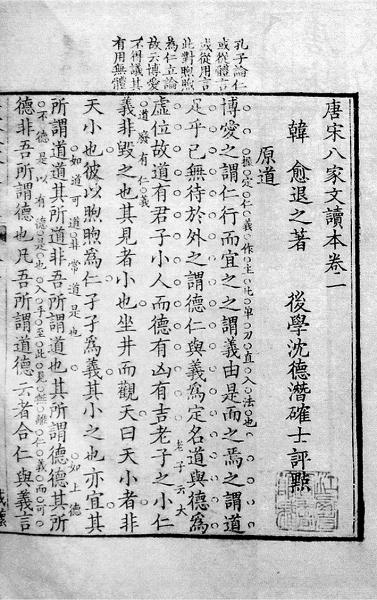 孔子論仁
或從體言
或從用言
此對煦煦
為仁立論
故云博愛
不得議其
有用無體
唐宋八家文讀本卷一
韓 愈退之著 後學沈德潛確士評點
原道
提定仁義作主此單刀直入法也
博愛之謂仁行而宜之之謂義由是而之焉之謂道
足乎己無待於外之謂德仁與義爲定名道與德爲
虛位故道有君子小人而德有凶有吉老子之小仁
老子云大
道發有仁義
義非毀之也其見者小也坐井而觀天曰天小者非
天小也彼以煦煦爲仁孑孑爲義其小之也亦宜其
如道可道非常道是也
所謂道道其所道非吾所謂道也其所謂德德其所
如上德
不德是以有德是也
德非吾所謂德也凡吾所謂道德云者合仁與義言